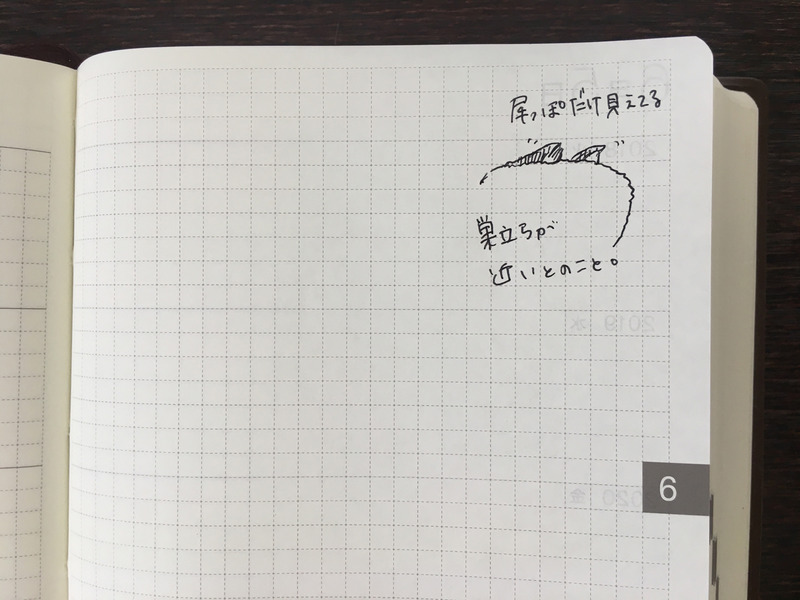 尾っぽだけ見えてる
巣立ちが
近いとのこと。
6